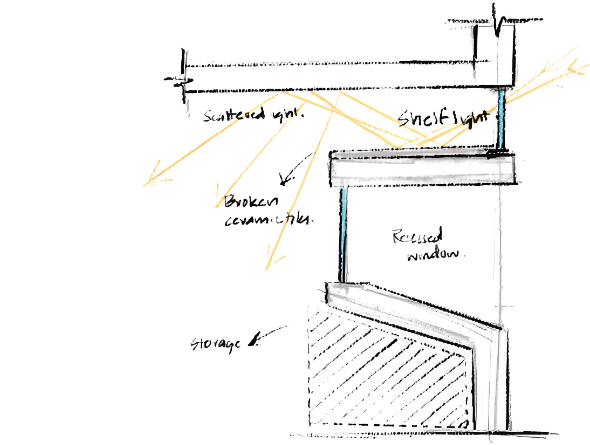 Scattered light.
Shelf light
Broken
ceramic tiles.
Recessed
window.
Storage